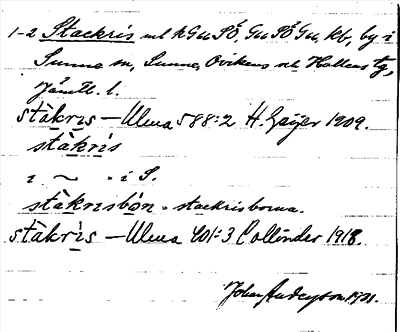 1-2 Stackris ml h Gu SÖ, Gu SÖ Gu, kb, by i
Sunne sn, Sunne, Ovikens och Hallens tg,
Jämtl. l.
stàkris – Ulma 588:2 H. Geijer 1909.
stàkris
i ~ - i S.
stàkrisbòn - stackrisborna.
stàkris – Ulma 401:3 Collinder 1918.
Johan Anderson 1921.